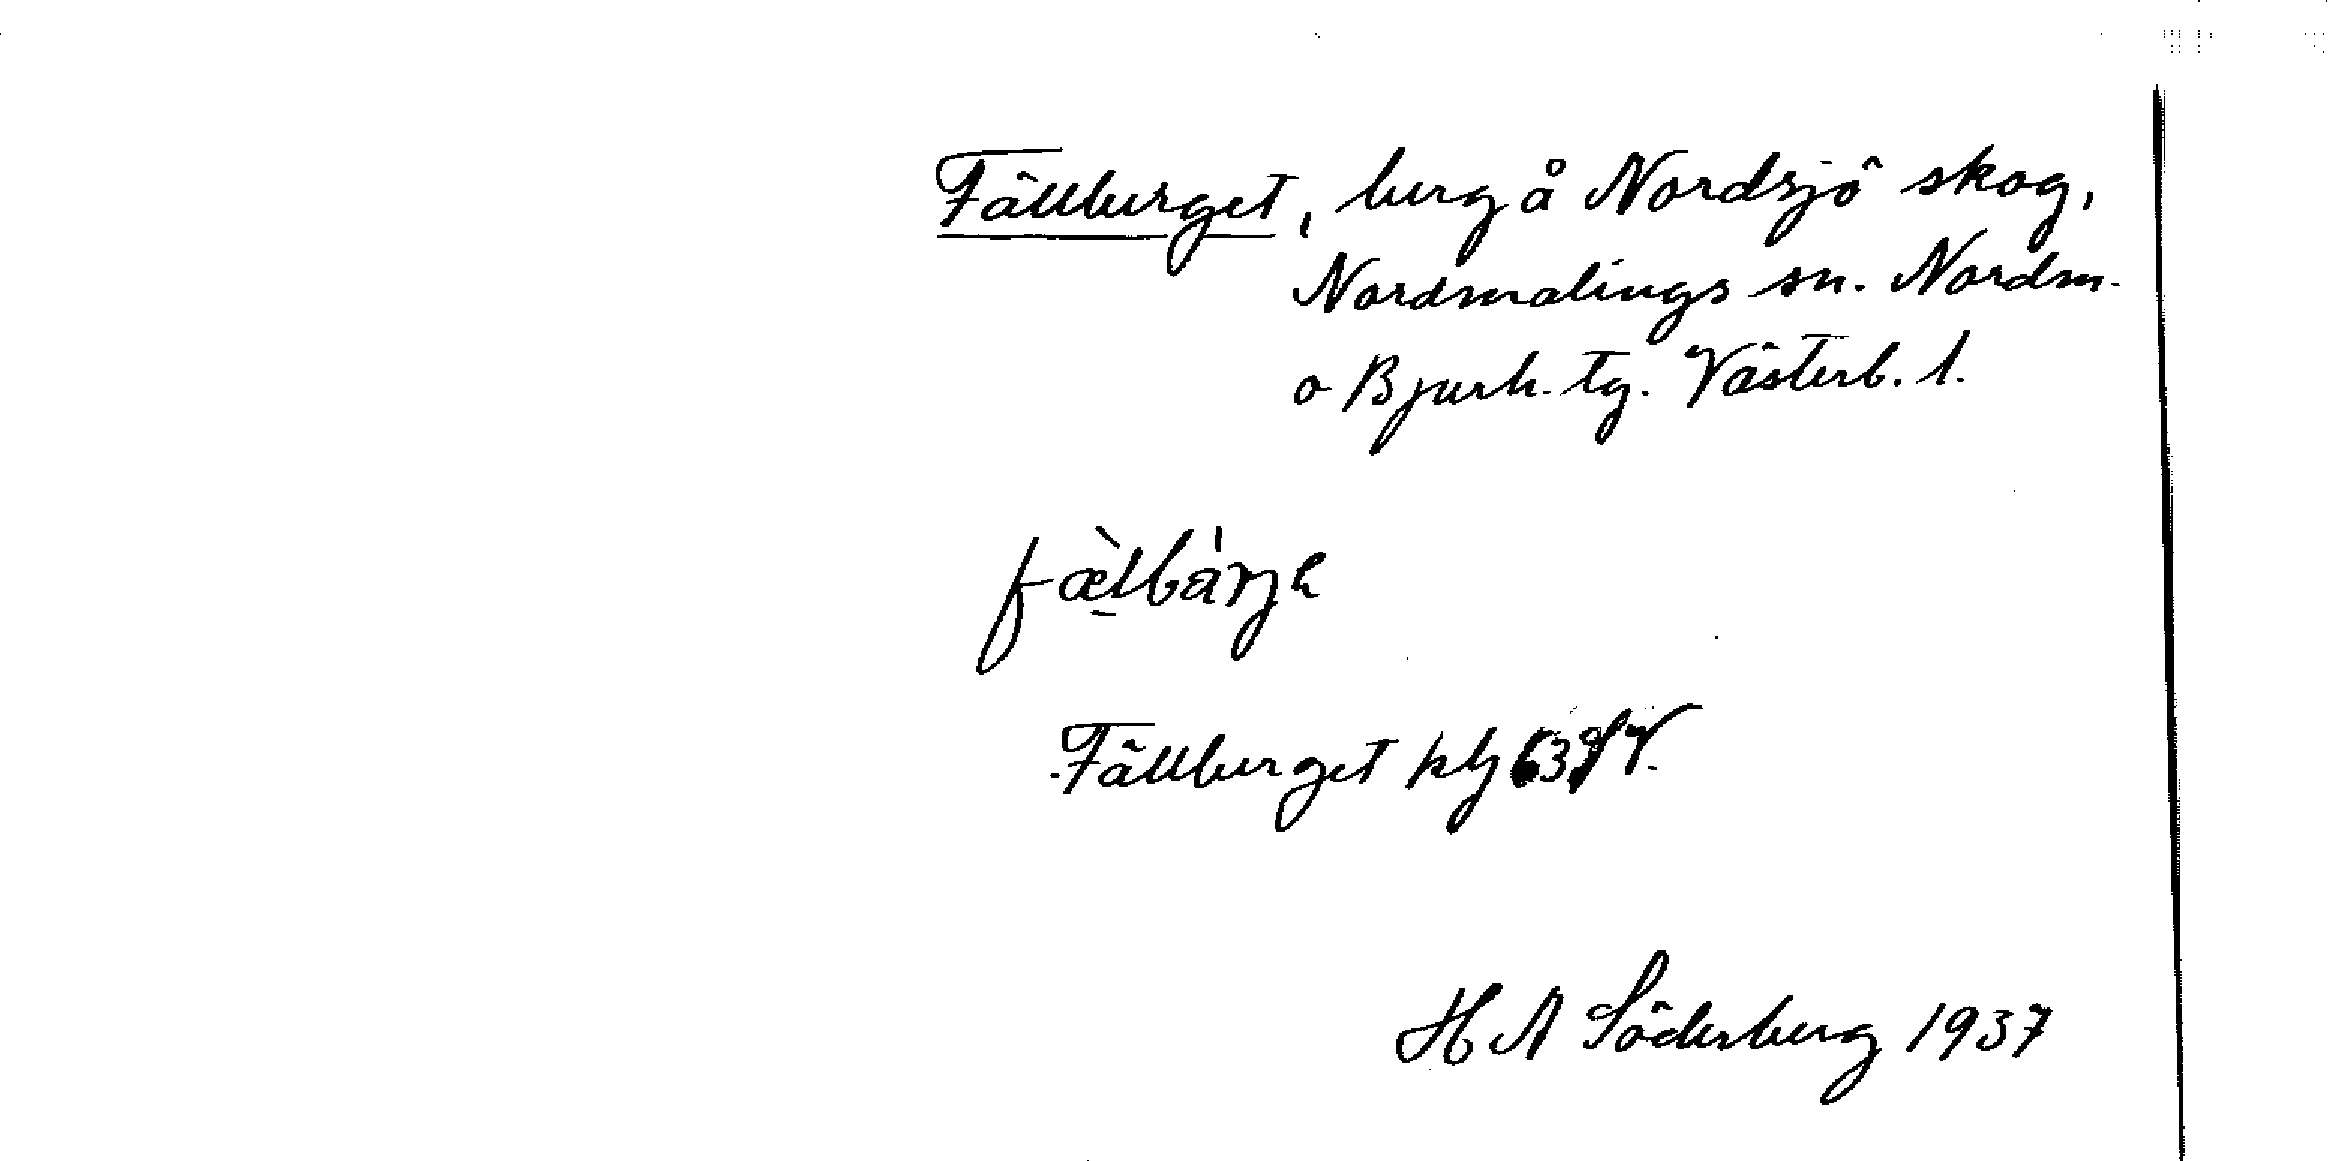 Fällberget, berg å Nordsjö skog,
Nordmalings sn. Nordm.
o Bjurh. tg. Västerb. l.
fæ̀lbàrje
Fällberget kbl 63 SV.
H A Söderberg 1937